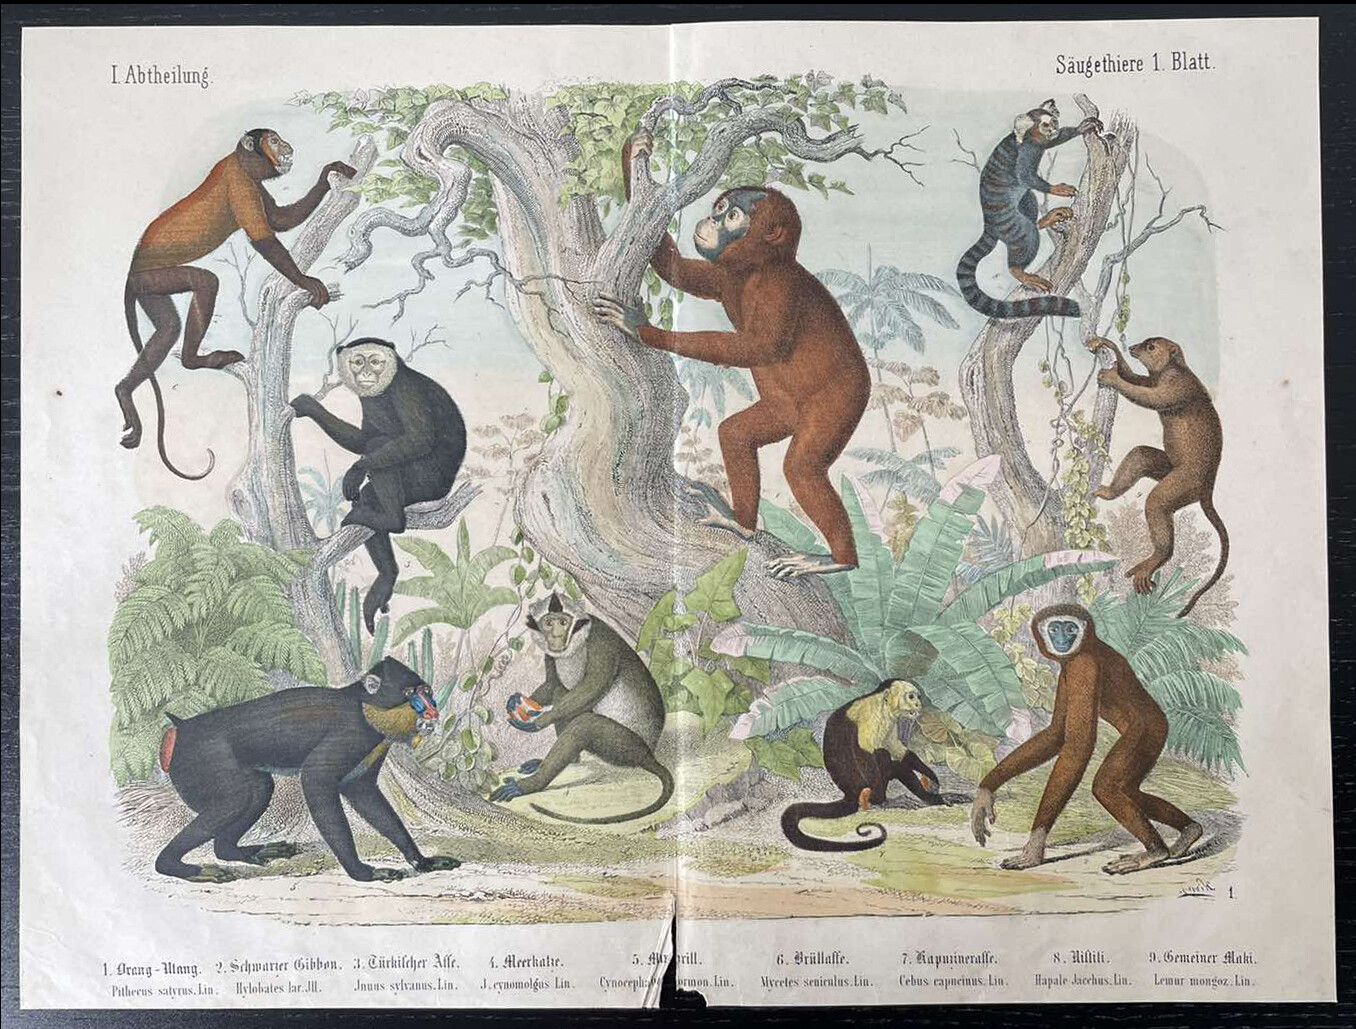 I. Abtheilung.
Säugethiere 1. Blatt.
1.
1. Orang-Utang. 2. Schwarzer Gibbon. 3. Türkischer Affe. 4. Meerkatze. 5. rill. 6. Brüllaffe. 7. Kapuzineraffe. 8. Uistiti. 9. Gemeiner Maki.
Pithecus satyrus. Lin. Hylobates lar. Jll. Jnuus sylvanus. Lin. J. cynomolgus Lin. Cynoceph ormon. Lin. Mycetes seniculus. Lin. Cebus capucinus. Lin. Hapale Jacchus. Lin. Lemur mongoz. Lin.